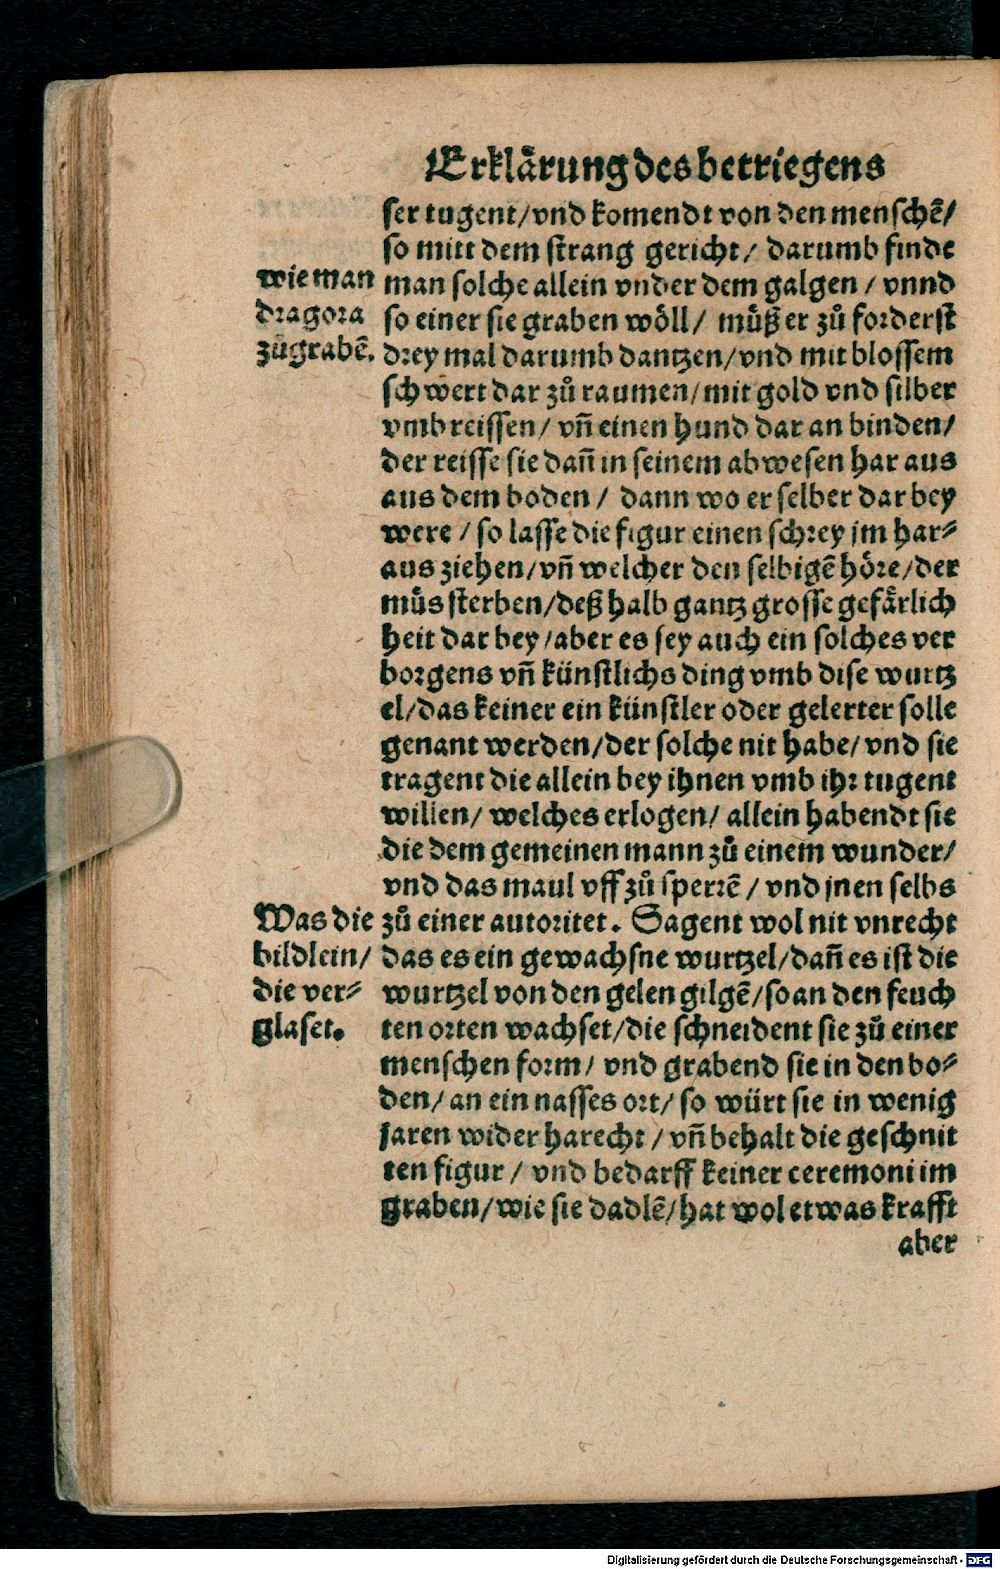 Erklärung des betriegens
ser tugent/ vnd komendt von den menschẽ/
so mitt dem strang gericht/ darumb finde
wie man
man solche allein vnder dem galgen / vnnd
dragora
so einer sie graben wöll/ müßz er zů forderst
zůgrabẽ.
drey mal darumb dantzen/ vnd mit blossem
schwert dar zů raumen/ mit gold vnd silber
vmb reissen/ vñ einen hund dar an binden/
der reisse sie dañ in seinem abwesen har aus
aus dem boden / dann wo er selber dar bey
were / so lasse die figur einen schrey im har⸗
aus ziehen/ vñ welcher den selbigẽ höre/ der
můs sterben/ deß halb gantz grosse gefårlich
heit dar bey/ aber es sey auch ein solches ver
borgens vñ künstlichs ding vmb dise wurtz
el/ das keiner ein künstler oder gelerter solle
genant werden/ der solche nit habe/ vnd sie
tragent die allein bey ihnen vmb ihr tugent
willen/ welches erlogen/ allein habendt sie
die dem gemeinen mann zů einem wunder/
vnd das maul vff zů sperrẽ / vnd jnen selbs
Was die
zů einer autoritet. Sagent wol nit vnrecht
bildlein/
das es ein gewachsne wurtzel/ dañ es ist die
die ver⸗
wurtzel von den gelen gilgẽ/ so an den feuch
glaset.
ten orten wachset/ die schneident sie zů einer
menschen form/ vnd grabend sie in den bo⸗
den/ an ein nasses ort/ so würt sie in wenig
jaren wider harecht / vñ behalt die geschnit
ten figur / vnd bedarff keiner ceremoni im
graben/ wie sie dadlẽ/ hat wol etwas krafft
aber
Digitalisierung gefördert durch die Deutsche Forschungsgemeinschaft - DFG